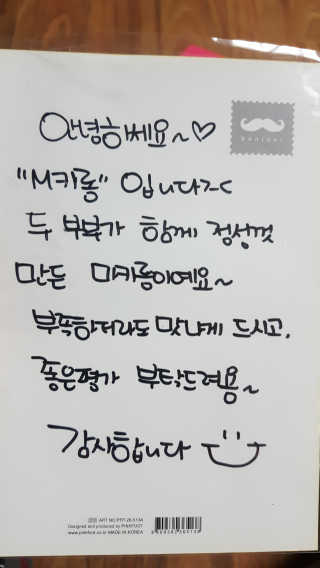 안녕하세요~♡
bonjour
"M카롱" 입니다~<
두 부부가 함께 정성껏
만든 마카롱이에요~
부족하더라도 맛나게 드시고,
좋은평가 부탁드려용~
감사합니다
Designed and produced by PINKFOOT
MADE IN KOREA